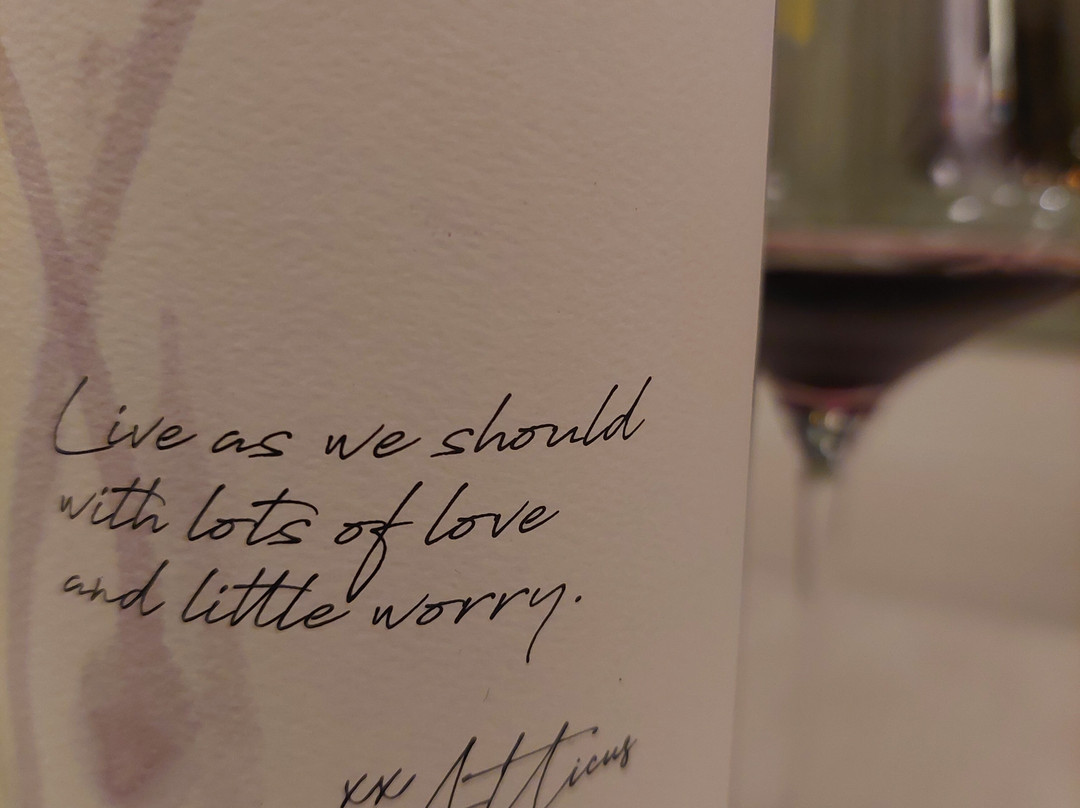 Live as we should
with lots of love
and little worry.
xx Atticus